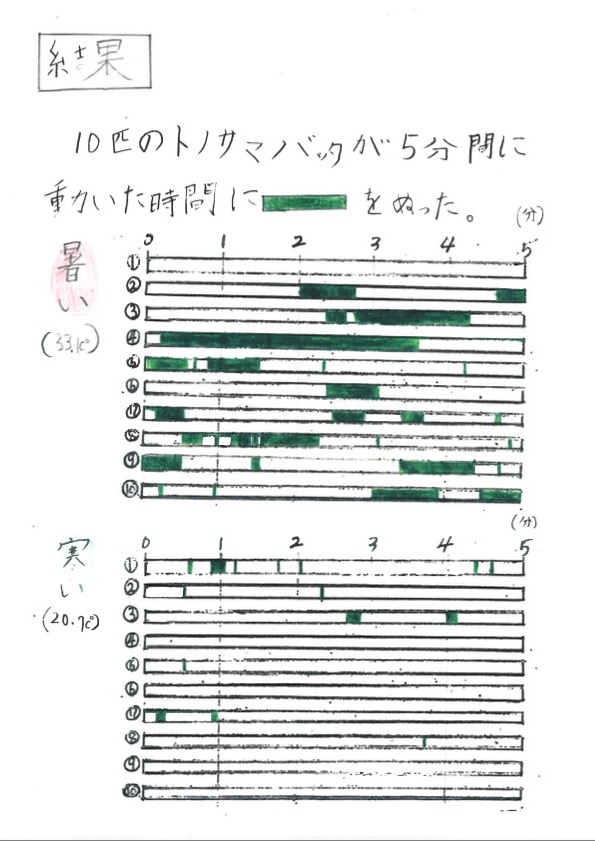 結果
10匹のトノサマバッタが5分間に
動いた時間に をぬった。
(分)
0 1 2 3 4 5
暑い
(33.1℃)
①
②
③
④
⑤
⑥
⑦
⑧
⑨
⑩
(分)
0 1 2 3 4 5
寒い
(20.7℃)
①
②
③
④
⑤
⑥
⑦
⑧
⑨
⑩